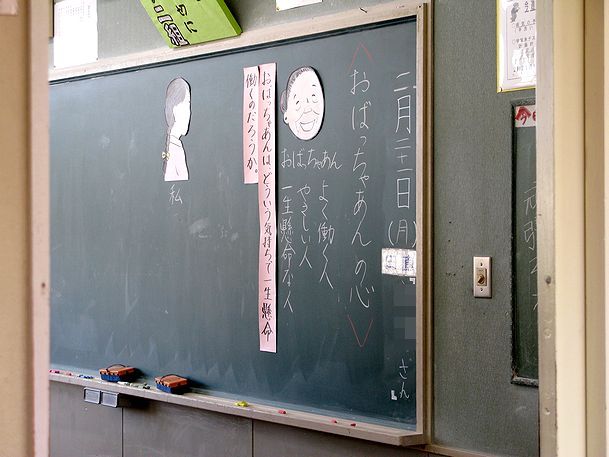 二月二十一日(月)
日直
さん
おばっちゃあんの心
おばっちゃあん
よく働く人
やさしい人
一生懸命な人
おばっちゃあんは、どういう気持ちで一生懸命
働くのだろうか。
私